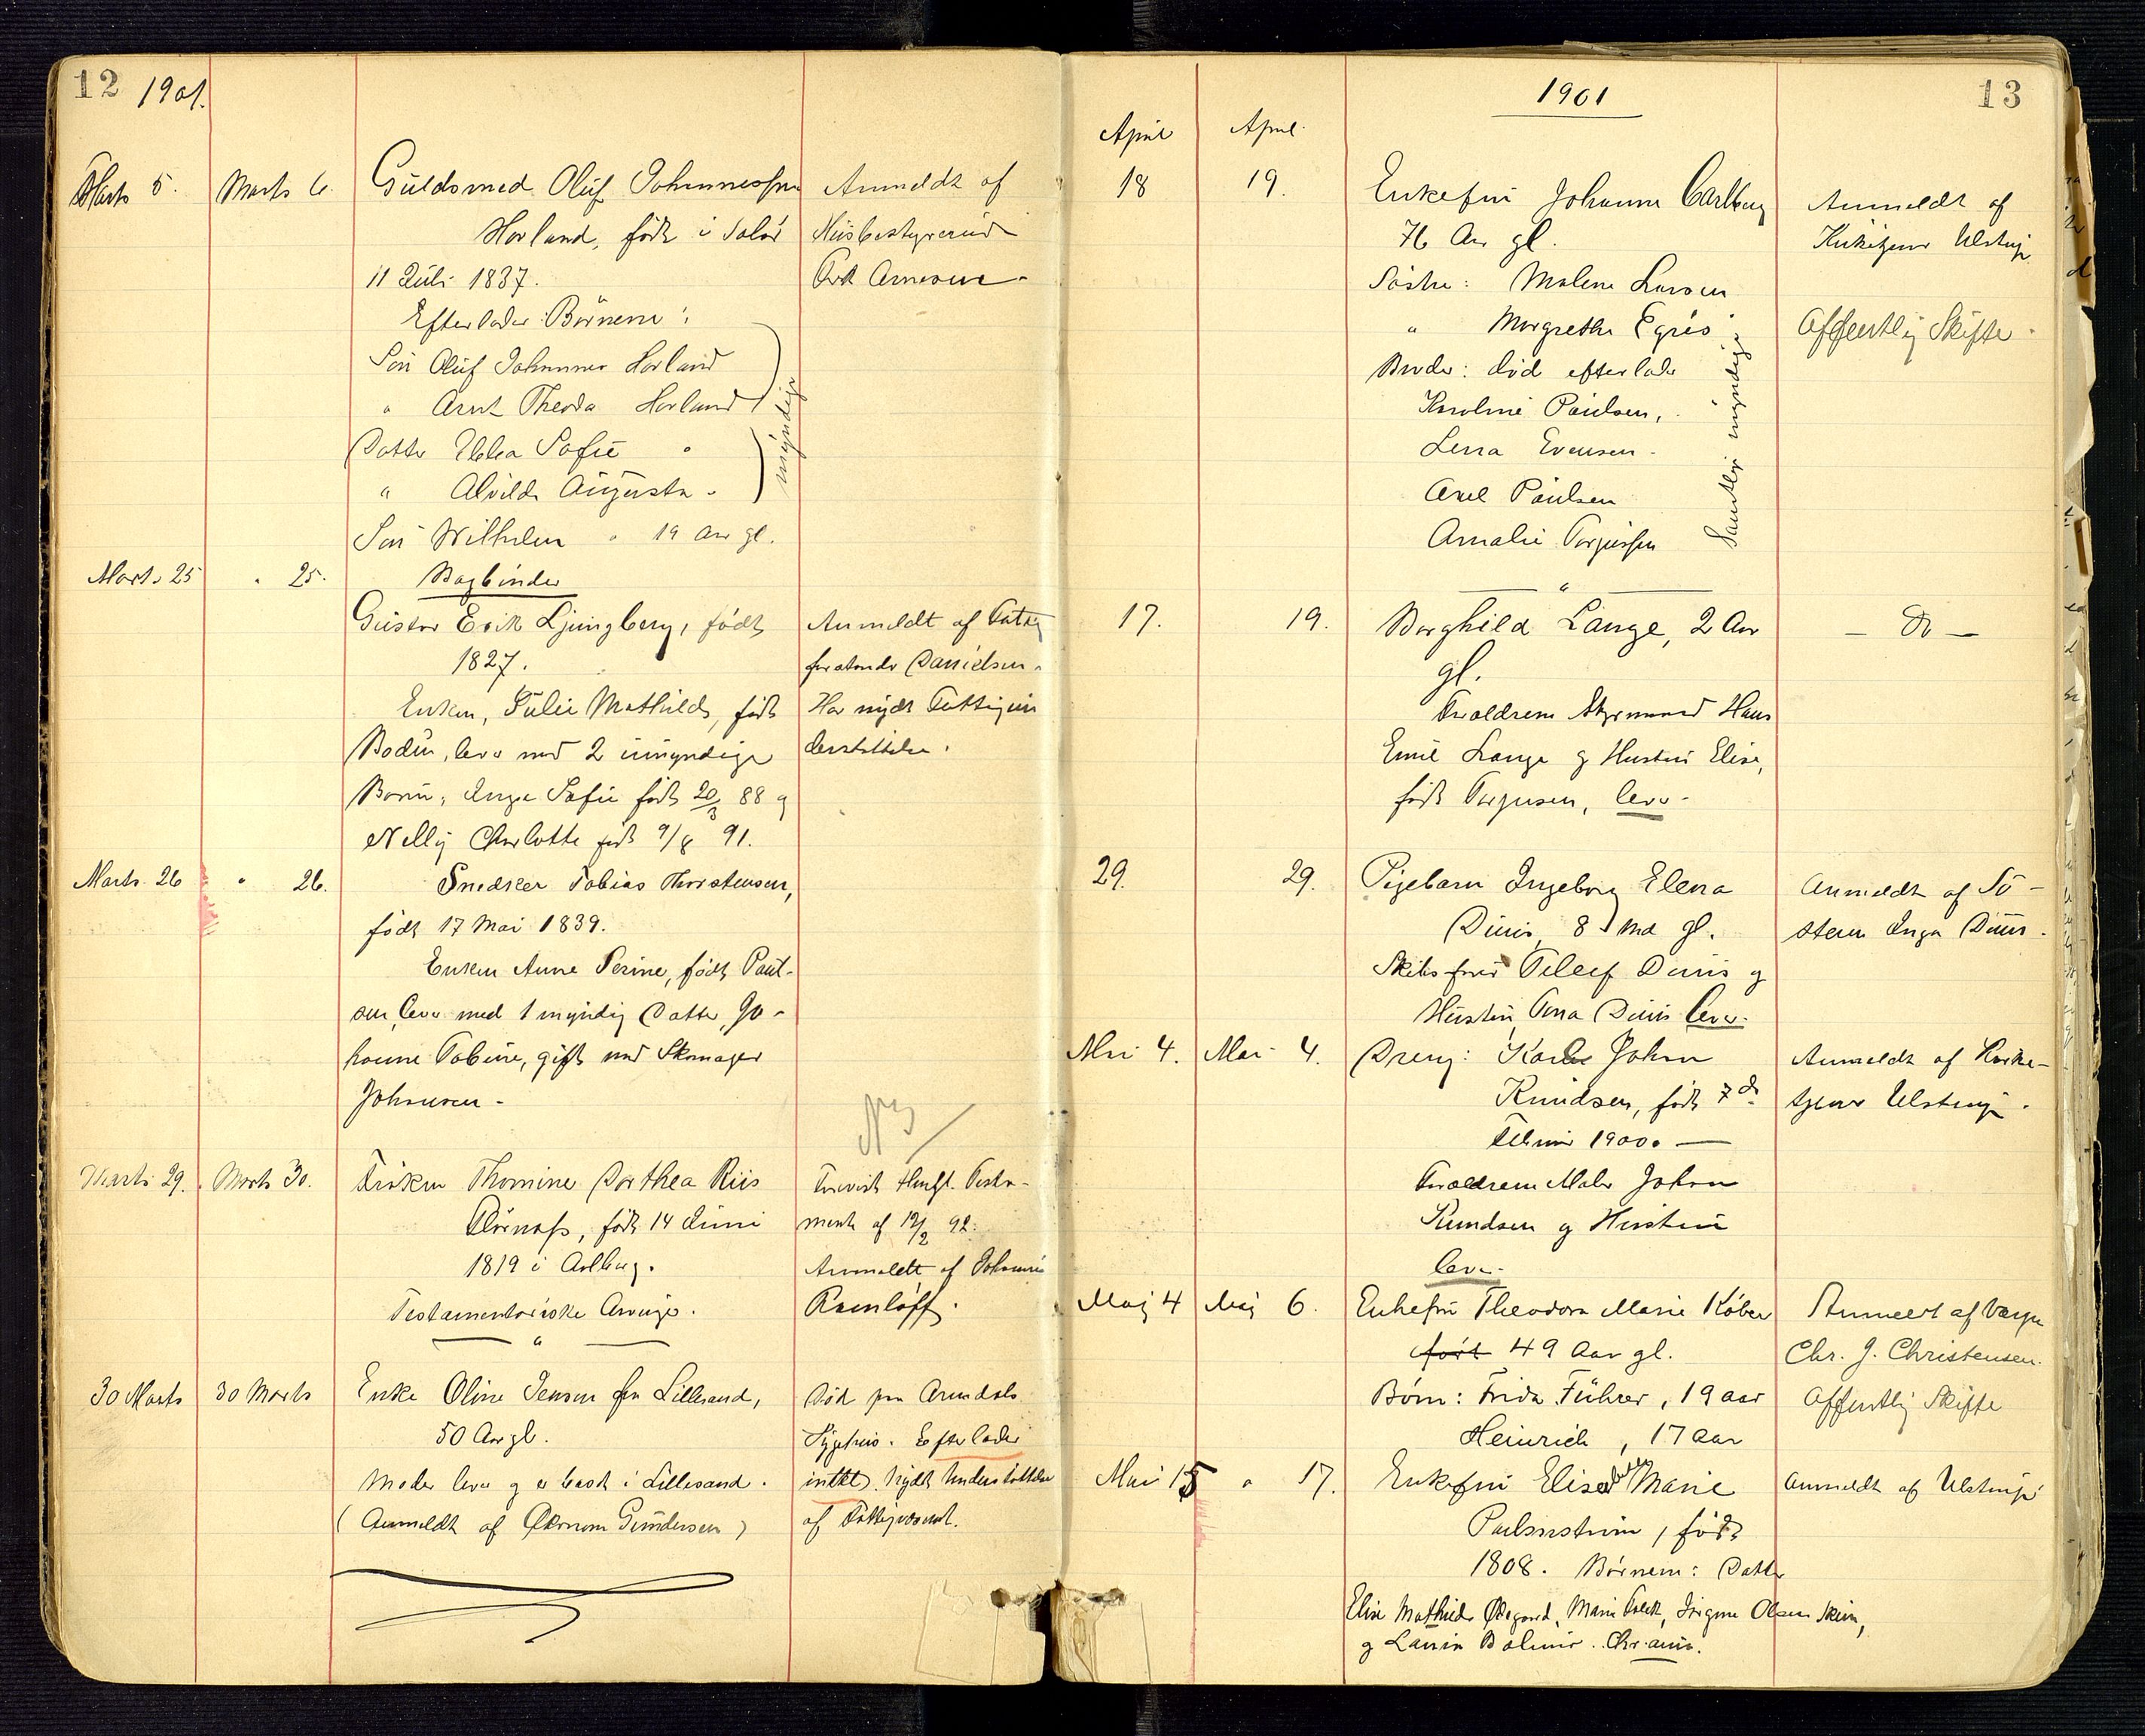 12 1901.
Marts 5. Marts 6. Guldsmed Oluf Johannessen Anmeldt af
Horland, født i Solør Husbestyrerinde
11 Juli 1837. Frk Arnesen
Efterlader Børnene:
Søn Oluf Johannes Horland
" Arnt Theoda Horland
myndige
Datter Ebba Sofie "
" Alvilda Augusta "
Søn Wilhelm " 19 Aar gl.
Marts 25 " 25. Bogbinder
Gustav Erik Ljungberg, født Anmeldt af Fattig
1827. forstander Danielsen.
Enken, Julie Mathilde, født Har nydt Fattigun
Bodin, lever med 2 umyndige derstøttelse.
Børn, Inga Sofie født 20/3 88 og
Nelly Charlotte født 9/8 91.
Marts 26 " 26. Snedker Tobias Thorstensen,
født 17 Mai 1839.
Enken Anne Serine, født Paul-
sen, lever med 1 myndig Datter, Jo-
hanne Tobine, gift med Skomager
Johnsen -
Marts 29. Marts 30. Frøken Thomine Dorthea Riis
Flørnæss, født 14 Juni ment af 12/2 92.
1819 i Aalborg. Anmeldt af Johanne
Testamentariske Arvinger. Ramløff.
"
30 Marts 30 Marts Enke Oline Jensen fra Lillesand, Død paa Arendals
50 Aar gl. Sygehus. Efterlader
Moder lever og er bosat i Lillesand. intet. Nydt Understøttelse
(Anmeldt af Økonom Gundersen) af Fattigvæsenet.
1901 13
April April
18 19. Enkefru Johanne Carlberg Anmeldt af
76 Aar gl. Kirketjener Ulstrup
Søstre: Malene Larsen
" Margrethe Egrés Offentlig Skifte
Broder: død efterlader
Karoline Paulsen,
Lerra Evensen
Axel Paulsen
Amalie Torjussen
Samtlige myndige
"
17. 19. Borghild Lange, 2 Aar — Do —
gl.
Forældrene Styrmand Hans
Emil Lange og Hustru Elise,
født Torjusen, lever
29. 29. Pigebarn Ingeborg Elena Anmeldt af Sø-
Duus 8 Md gl. steren Inga Duus.
Skibsfører Teleef Duus og
Hustru Tona Duus lever.
Mai 4. Mai 4. Dreng: Karl John Anmeldt af Kirke-
Knudsen, født 7de tjener Ulstrup.
Februar 1900. —
Forældrene Maler Johan
Knudsen og Hustru
lever.
Maj 4 Maj 6. Enkefru Theodora Marie Köber Anmeldt af Værge
født 49 Aar gl. Chr. J. Christensen.
Børn: Frida Führer, 19 aar Offentlig Skifte
Heinrich, 17 aar
Mai 15 " 17. Enkefru Elisabeth Marie Anmeldt af Ulstrup
født
1808. Børnene: Datter
Elise Mathilde Øregaard, Marie Falck, Jørgine Olsen Skien,
og Laura Bolmer. Chr.ania.